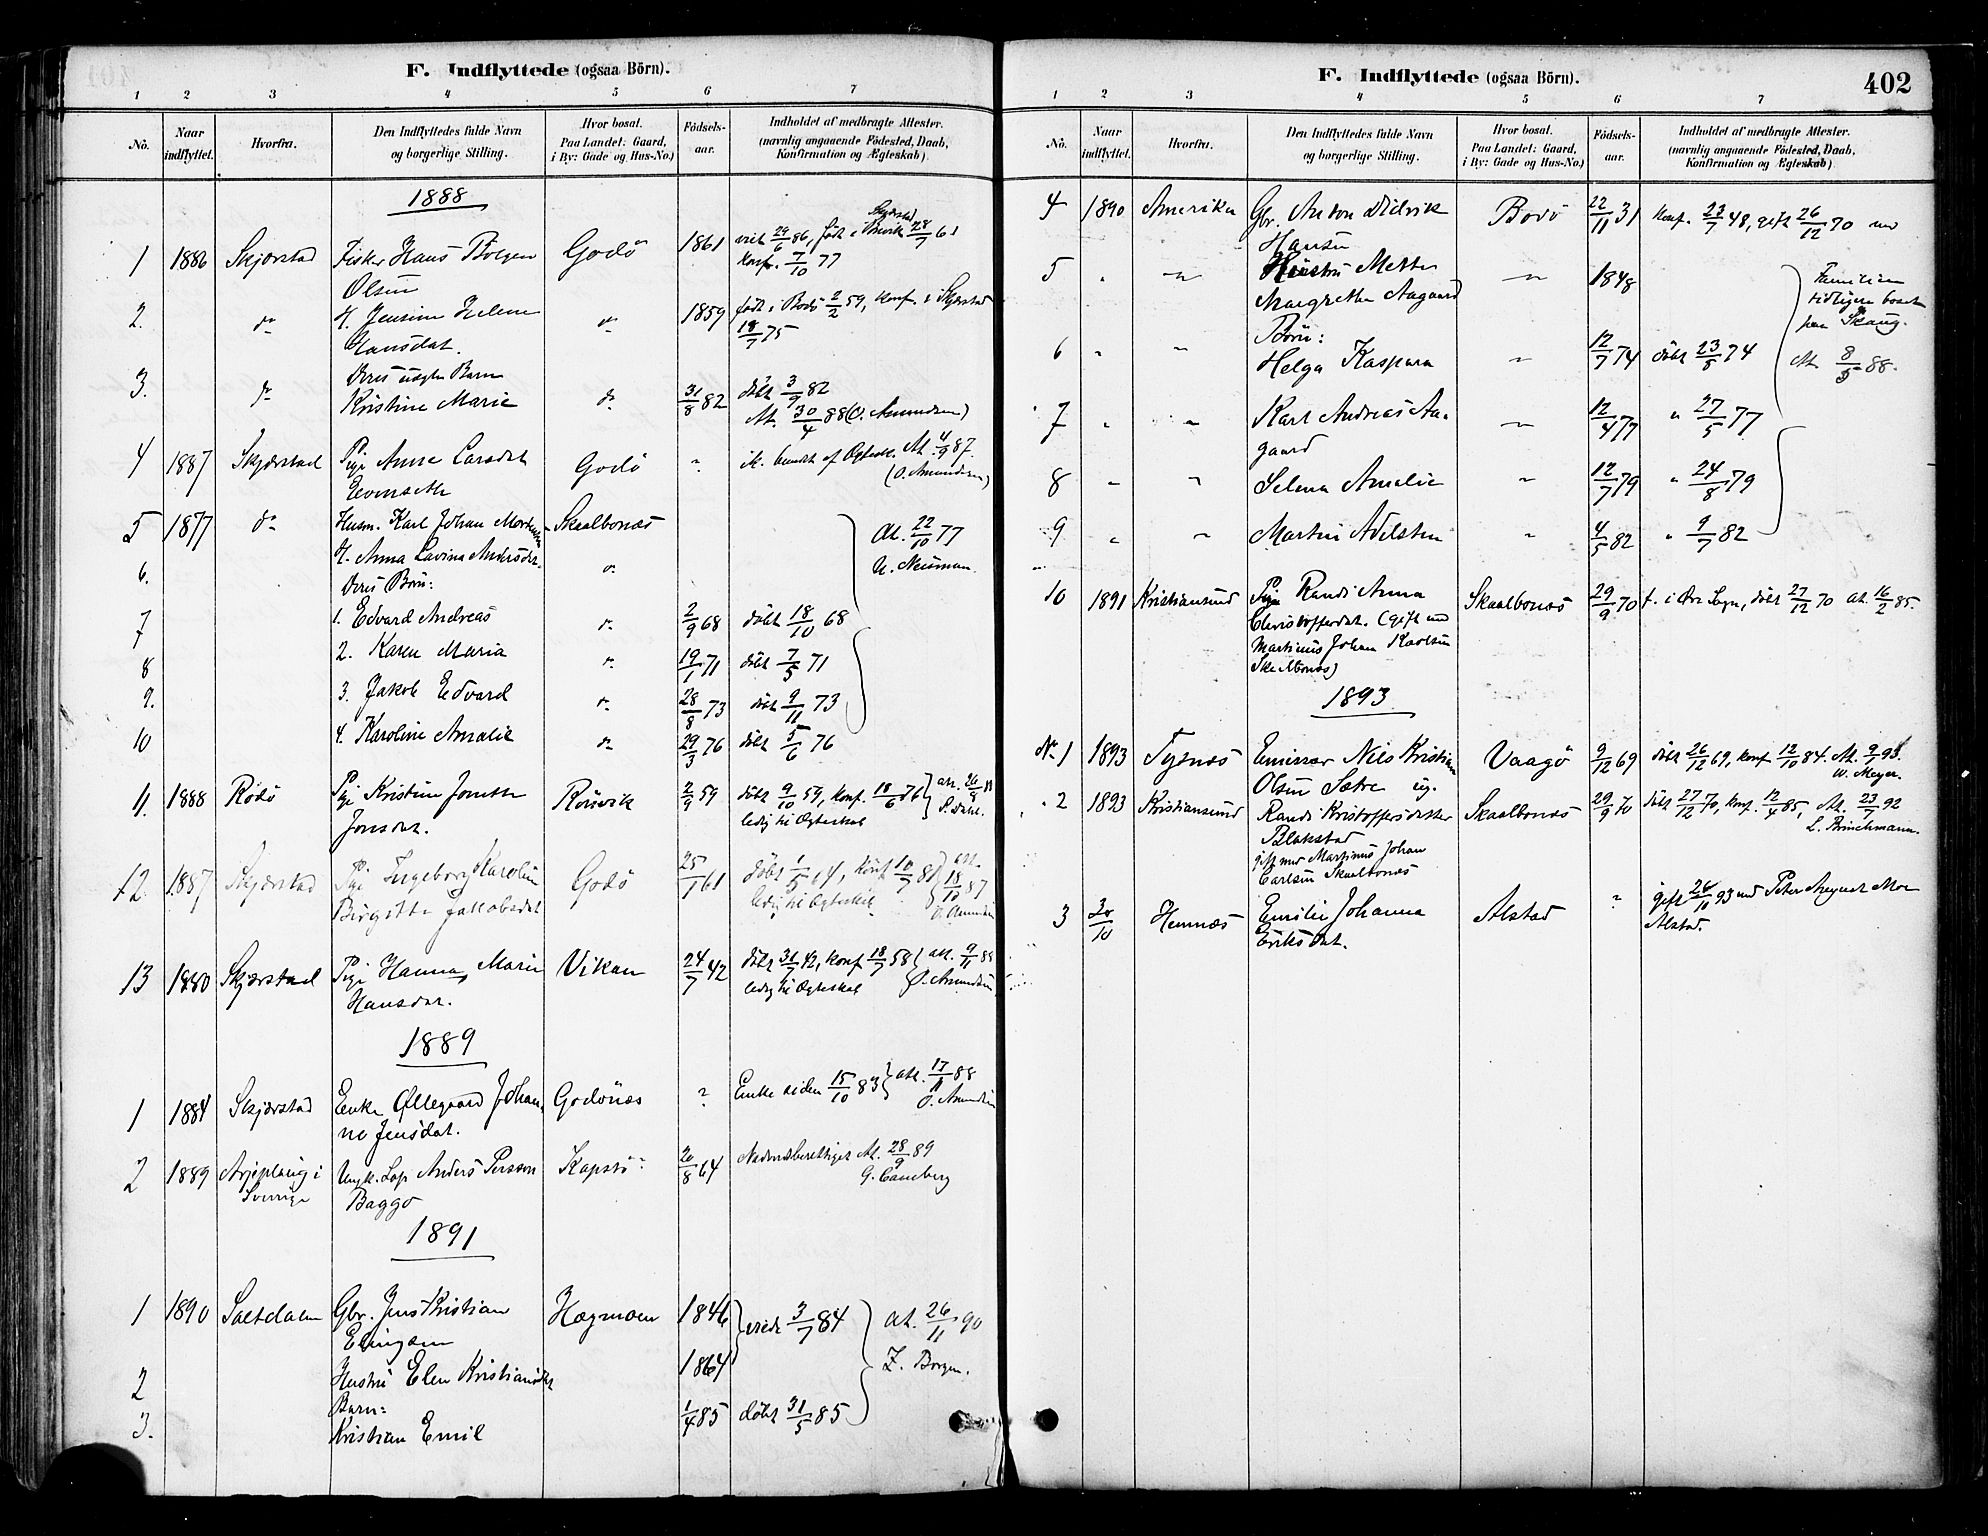 F. Indflyttede (ogsaa Börn).
1 2 3 4 5 6 7
No. Naar indflyttet. Hvorfra. Den Indflyttedes fulde Navn og borgerlige Stilling. Hvor bosat. Paa Landet: Gaard, i By: Gade og Hus-No.) Fødsels-aar. Indholdet af medbragte Attester. (navnlig angaaende Fødested, Daab, Konfirmation og Ægteskab).
1888
1 1886 Skjærstad Fisker Hans Olsen Godö 1861 viet 29/6 86, født i Skjærstad 28/7 61 konf. 7/10 77
2. do H. Jensine Helene Hansdat. do 1859 født i Bodö 2/2 59, konf. i Skjærstad 18/7 75
Deres Barn
3. do Kristine Marie do 31/8 82 döbt 3/9 82
At. 30/4 88 (O. Amundsen)
4 1887 Skjærstad Pige Anna Larsdat Evensseth Godö " At. 4/9 87. (O. Amundsen)
5 1877 do Husm. Karl Johan Skaalbonæs
6. H. Anna Lavina Andersdat. do At. 22/10 77
Deres Börn:
7 1. Edvard Andreas do 2/9 68 döbt 18/10 68
8 2. Karen Maria do 19/1 71 döbt 7/5 71
9. 3. Jakob Edvard do 28/8 73 döbt 9/11 73
10 4. Karoline Amalie do 29/3 76 döbt 5/6 76
11. 1888 Rödö Pige Kristine Jonette Jonsdat. Rörvik 2/9 59 döbt 9/10 59, konf. 18/6 76
ledig til Ægteskab
12. 1887 Skjærstad Pige Ingeborg Karoline Birgitte Jakobsdat Godö 25/1 61
ledig til Ægteskab O. Amundsen
13 1880 Skjærstad Pige Hanna Marie Hansdat. Vikan 24/7 42 döbt 31/7 42, konf 18/7 58 att. 9/11 88
ledig til Ægteskab O. Amundsen
1889
1 1884 Skjærstad Enke Øllegaard Johanne Jensdat. Godönes ? Enke siden 15/10 83 att. 17/11 88 O. Amundsen
2 1889 Arjeplaug i Sverrige Ungk. Lap Anders Persson Baggo Kapstö 20/8 64 Nadverdberettiget At. 28/9 89
1891
1 1890 Saltdalen Gbr. Jens Kristian Hagmoen 1846 viede 3/7 84 At. 26/11 90
2 Hustru Elen Kristiansdat 1864 Z. Borgen.
Barn:
3. Kristian Emil 1/4 85 döbt 31/5 85
F. Indflyttede (ogsaa Börn). 402
1 2 3 4 5 6 7
No. Naar indflyttet. Hvorfra. Den Indflyttedes fulde Navn og borgerlige Stilling. Hvor bosat. Paa Landet: Gaard, i By: Gade og Hus-No.) Fødsels-aar. Indholdet af medbragte Attester. (navnlig angaaende Fødested, Daab, Konfirmation og Ægteskab).
4 1890 Amerika Gbr. Anton Didrik Hansen Bodö 22/11 31 konf. 23/7 48, gift 26/12 70 med
5 " " Hustru Mette Margrethe Aagaard " 1848 Familien tidligere bosat paa Skaug.
Börn:
6 " " Helga Kaspara " 12/7 74 döbt 23/8 74 At. 8/5 88.
7 " " Karl Andreas Aagaard " 12/4 77 " 27/5 77
8 " " Selma Amalie " 12/7 79 " 24/8 79
9 " " Martin Adelsten " 4/5 82 " 9/7 82
10 1891 Kristiansund Pige Randi Anna Christofferdat. (gift med Martinus Johan Karlsen Skaalbonæs) Skaalbonæs 29/9 70 f. i Øre Sogn, döbt 27/12 70 at. 16/2 85.
1893
No 1 1893 Tysnæs Emissær Nils Kristian Olsen Sætre ug. Vaagö 9/12 69 döbt 26/12 69, konf 12/10 84. At. 9/2 93. W. Meyer.
2 1893 Kristiansund Randi Kristoffersdatter Blakstad Skaalbonæs 29/9 70 döbt 27/12 70, konf. 12/4 85, At. 23/7 92
gift med Martinus Johan Carlsen Skaalbonæs L. Brinchmann.
3 30/10 Hemnæs Emilie Johanna Eriksdat. Alstad " gift 26/10 93 med Peter Meyer Moe Alstad.